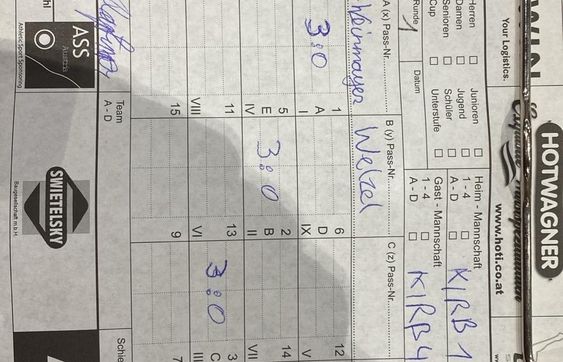 HOTWAGNER
Your Logistics.
www.hoti.co.at
Herren
Damen
Senioren
Cup
Junioren
Jugend
Schüler
Unterstufe
Heim - Mannschaft
1 - 4
A - D
KIRB 1
Gast - Mannschaft
1 - 4
A - D
KIRB 4
Runde 1
Datum
A (x) Pass-Nr.
B (y) Pass-Nr.
C (z) Pass-Nr.
Weinmayer
Welzel
1 6 12
A D
I IX V
3:0
5 2 14
E B
IV II VII
3:0
11 13 3
C
VIII VI III
3:0
15 9 7
Team
A - D
ASS
Austria
Athletic Sport Sponsoring
SWIETELSKY
Baugesellschaft m.b.H.
Schie